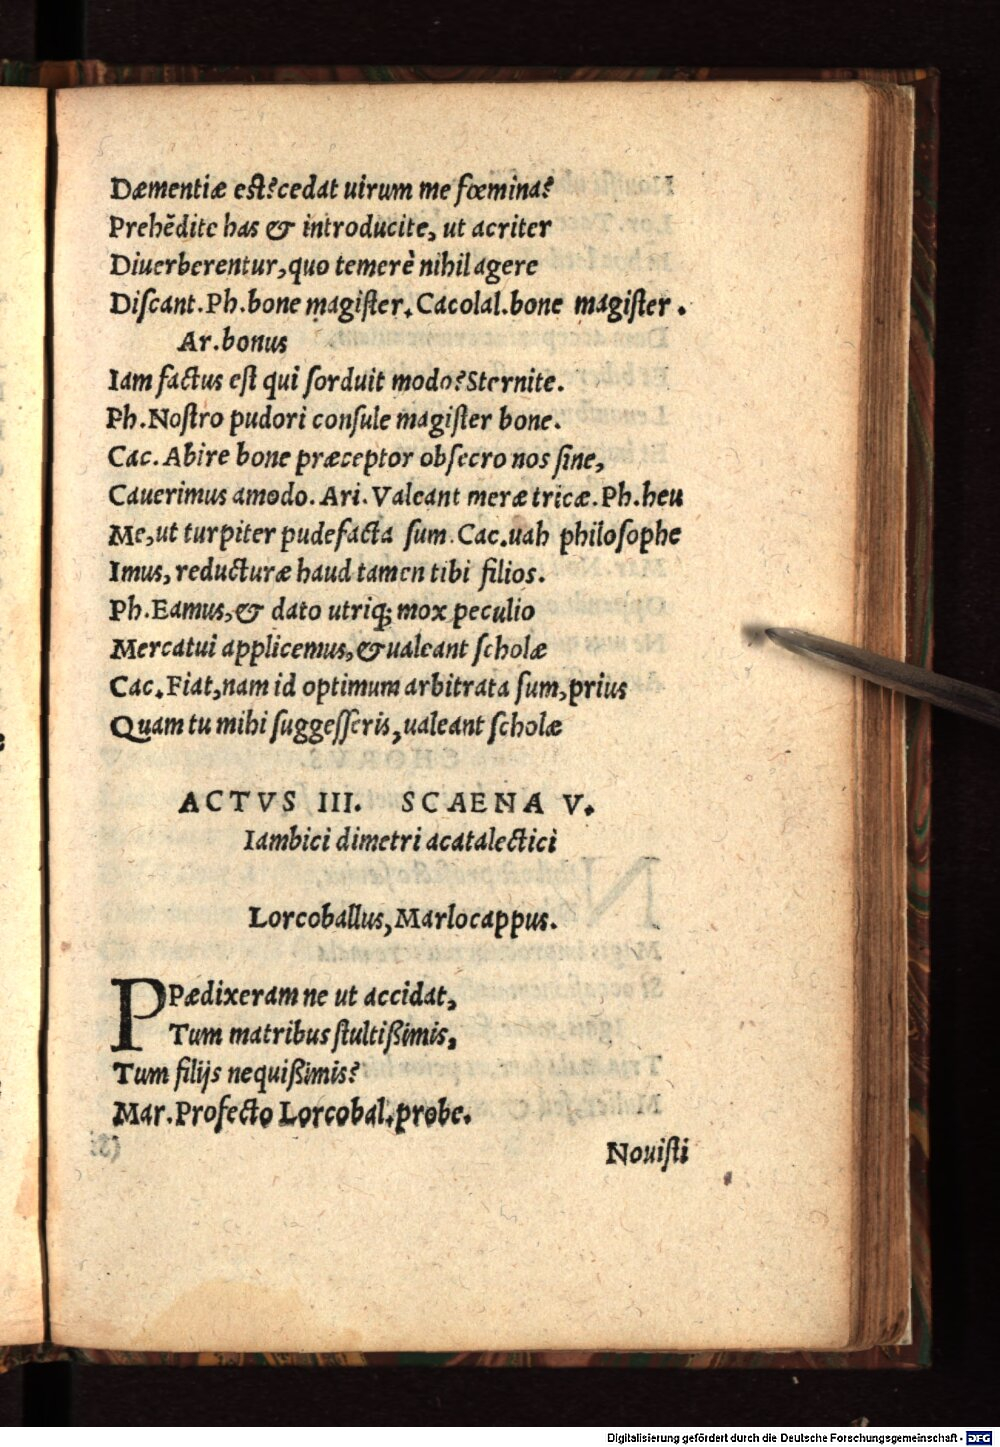 Dæmentiæ est?cedat uirum me fœmina?
Prehēdite has & introducite, ut acriter
Diuerberentur,quo temerè nihil agere
Diſcant.Ph.bone magiſter.Cacolal.bone magiſter.
Ar.bonus
Iam factus eſt qui ſorduit modo?Sternite.
Ph.Noſtro pudori conſule magiſter bone.
Cac.Abire bone præceptor obſecro nos ſine,
Cauerimus amodo. Ari.Valeant meræ tricæ.Ph.heu
Me,ut turpiter pudefacta ſum.Cac.uah philoſophe
Imus,reducturæ haud tamen tibi filios.
Ph.Eamus,& dato utriq; mox peculio
Mercatui applicemus,& ualeant ſcholæ
Cac.Fiat,nam id optimum arbitrata ſum,prius
Quam tu mihi ſuggeſſeris,ualeant ſcholæ
ACTVS III. SCAENA V.
Iambici dimetri acatalectici
Lorcoballus,Marlocappus.
PPædixeram ne ut accidat,
Tum matribus ſtultißimis,
Tum filijs nequißimis?
Mar.Profecto Lorcobal.probe.
Nouiſti
Digitalisierung gefördert durch die Deutsche Forschungsgemeinschaft - DFG